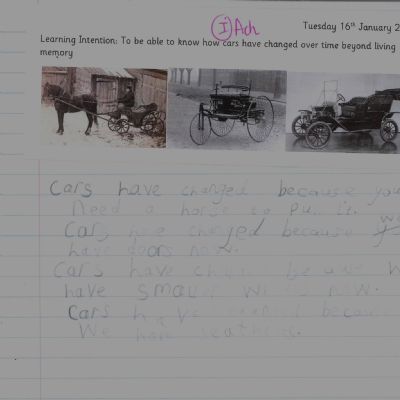 I Ach
Tuesday 16th January 2
Learning Intention: To be able to know how cars have changed over time beyond living
memory
Cars have changed because you
Need a horse to pull it.
Cars have changed because
have doors now.
Cars have
have smaller now.
Cars have because
We have